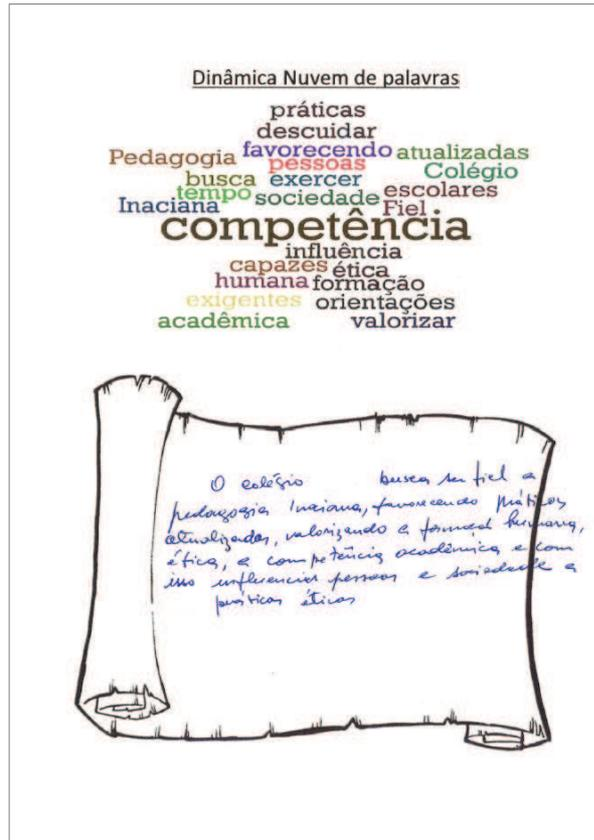 Dinâmica Nuvem de palavras
práticas
descuidar
favorecendo
Pedagogia
pessoas
atualizadas
busca
exercer
Colégio
tempo
sociedade
escolares
Inaciana
Fiel
competência
influência
capazes
ética
humana
formação
exigentes
orientações
acadêmica
valorizar
O colégio busca ser fiel a
pedagogia Inaciana, favorecendo práticas
atualizadas, valorizando a humana,
ética, a competência acadêmica e com
isso influenciar pessoas e sociedade a
práticas éticas